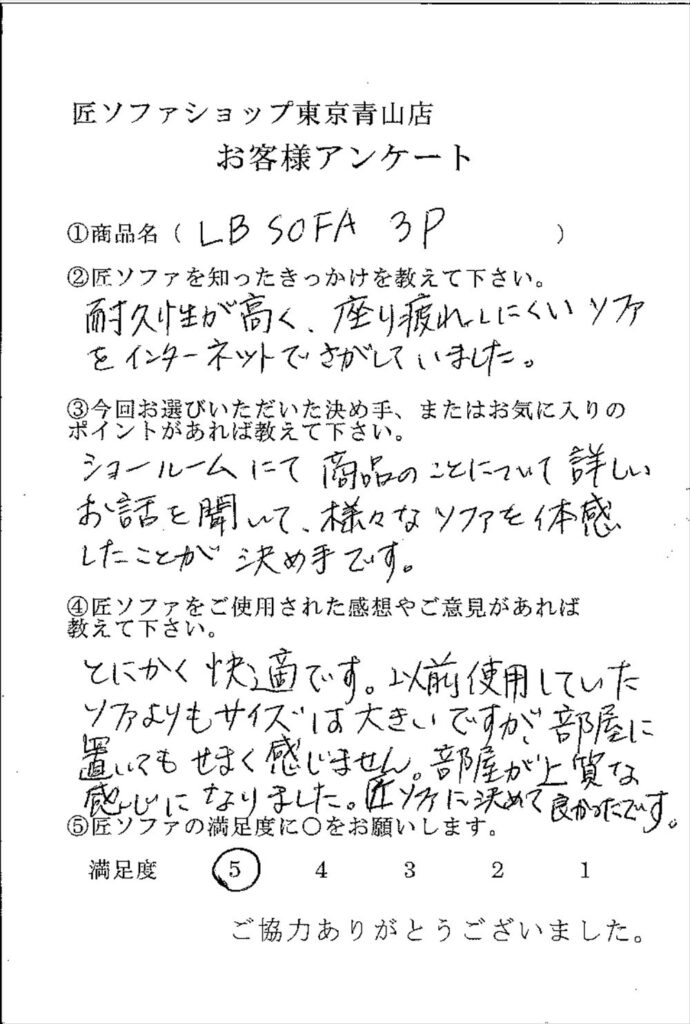 匠ソファショップ東京青山店
お客様アンケート
①商品名（ LB SOFA 3P ）
②匠ソファを知ったきっかけを教えて下さい。
耐久性が高く、座り疲れしにくいソファ
をインターネットでさがしていました。
③今回お選びいただいた決め手、またはお気に入りの
ポイントがあれば教えて下さい。
ショールームにて商品のことについて詳しい
お話を聞いて、様々なソファを体感
したことが決め手です。
④匠ソファをご使用された感想やご意見があれば
教えて下さい。
とにかく快適です。以前使用していた
ソファよりもサイズは大きいですが、部屋に
置いてもせまく感じません。部屋が上質な
感じになりました。匠ソファに決めて良かったです。
⑤匠ソファの満足度に〇をお願いします。
満足度 5 4 3 2 1
ご協力ありがとうございました。